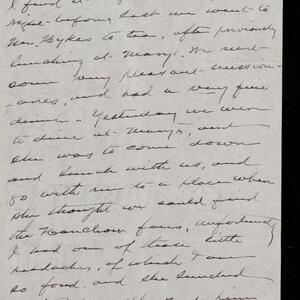 I find it
night before last we went to
Mr. Sykes to tea, after previously
lunching at Mary's. We met
some very pleasant mission-
aries, and had a very fine
dinner - Yesterday we were
to dine at Mary's, and
she was to come down
and lunch with us, and
go with me to a place where
she thought we could find
the Kanchow fans, unfortunately
I had one of those little
headaches, of which I am
so fond, and she lunched